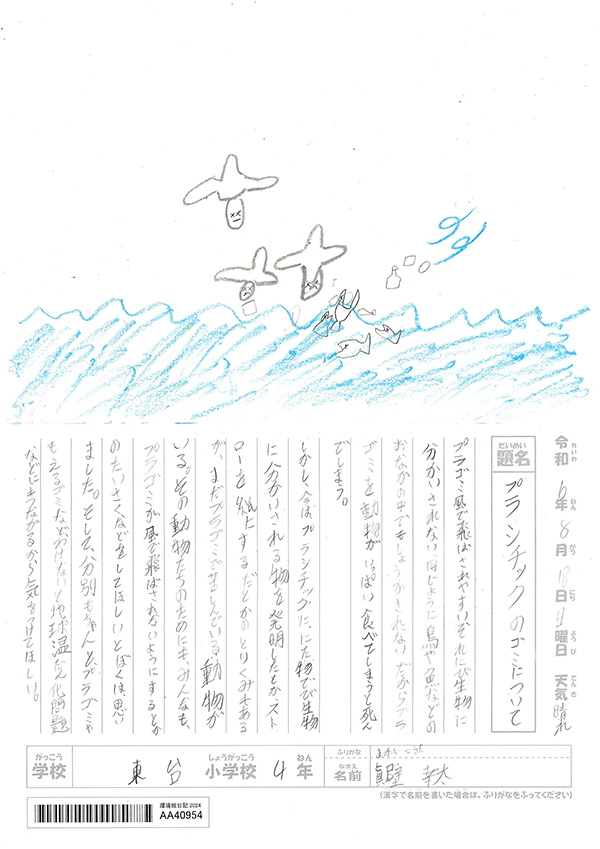 令和6年8月18日日曜日 天気晴れ
れいわ ねん がつ にち ようび てんき
だいめい
題名 プラシチックのゴミについて
プラゴミ風で飛ばされやすい、それにび生物に
分かいされない同じように鳥や魚などの
おなかの中でもしょうかされないだからプラ
ゴミを動物がいっぱい食べてしまうと死ん
でしまう。
しかし、今はプラシチックに、にた物でび生物
に分かいされる物を発明したとかスト
ローを紙にするだとかのとりくみもある
が、まだプラゴミで苦しんでいる動物が
いる。その動物たちのためにも、みんなも、
プラゴミが風で飛ばされないようにするとか
のたいさくなどをしてほしいとぼくは、思い
ました。そして、分別もちゃんとプラゴミや
もえるゴミなどわけないと地球温だん化問題
などにもつながるから気をつけてほしい。
がっこう しょうがっこう ねん
学校 東台 小学校 4年
ふりがな まかべ こうた
なまえ
名前 眞壁 幸太
(漢字で名前を書いた場合は、ふりがなをふってください)
環境絵日記 2024
AA40954